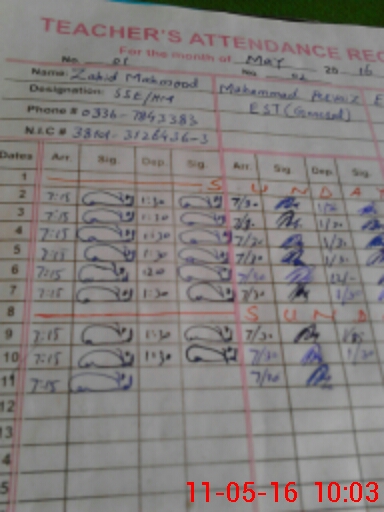 TEACHER'S ATTENDANCE REC
For the month of May 20 16
No. 01 No. 02
Name: Zahid Mahmood Muhammad
Designation: SSE/HM EST (General)
Phone # 0336-7843383
N.I.C # 38101-3126436-3
Dates Arr. Sig. Dep. Sig. Arr. Sig. Dep. Sig
1 S U N D A Y
2 7:15 1:30 7/30
3 7:15 1:30
4 7:15 1:30 7/30 1/30
5 7:15 1:30 7/30 1/30
6 7:15 7/30 12/-
7 7:15 1:30 7/30 1/30
8 S U N D
9 7:15 1:30 7/30
10 7:15 1:30 7/30 1/30
11 7:15 7/30
12
13
4
5
11-05-16 10:03